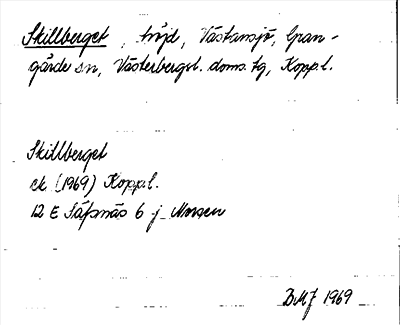 Skillberget, höjd, Västansjö, Gran-
gärde sn, Västerbergsl. doms. tg, Kopp.l.
Skillberget
ek (1969) Kopp.l.
12 E Säfsnäs 6 j
BMJ 1969